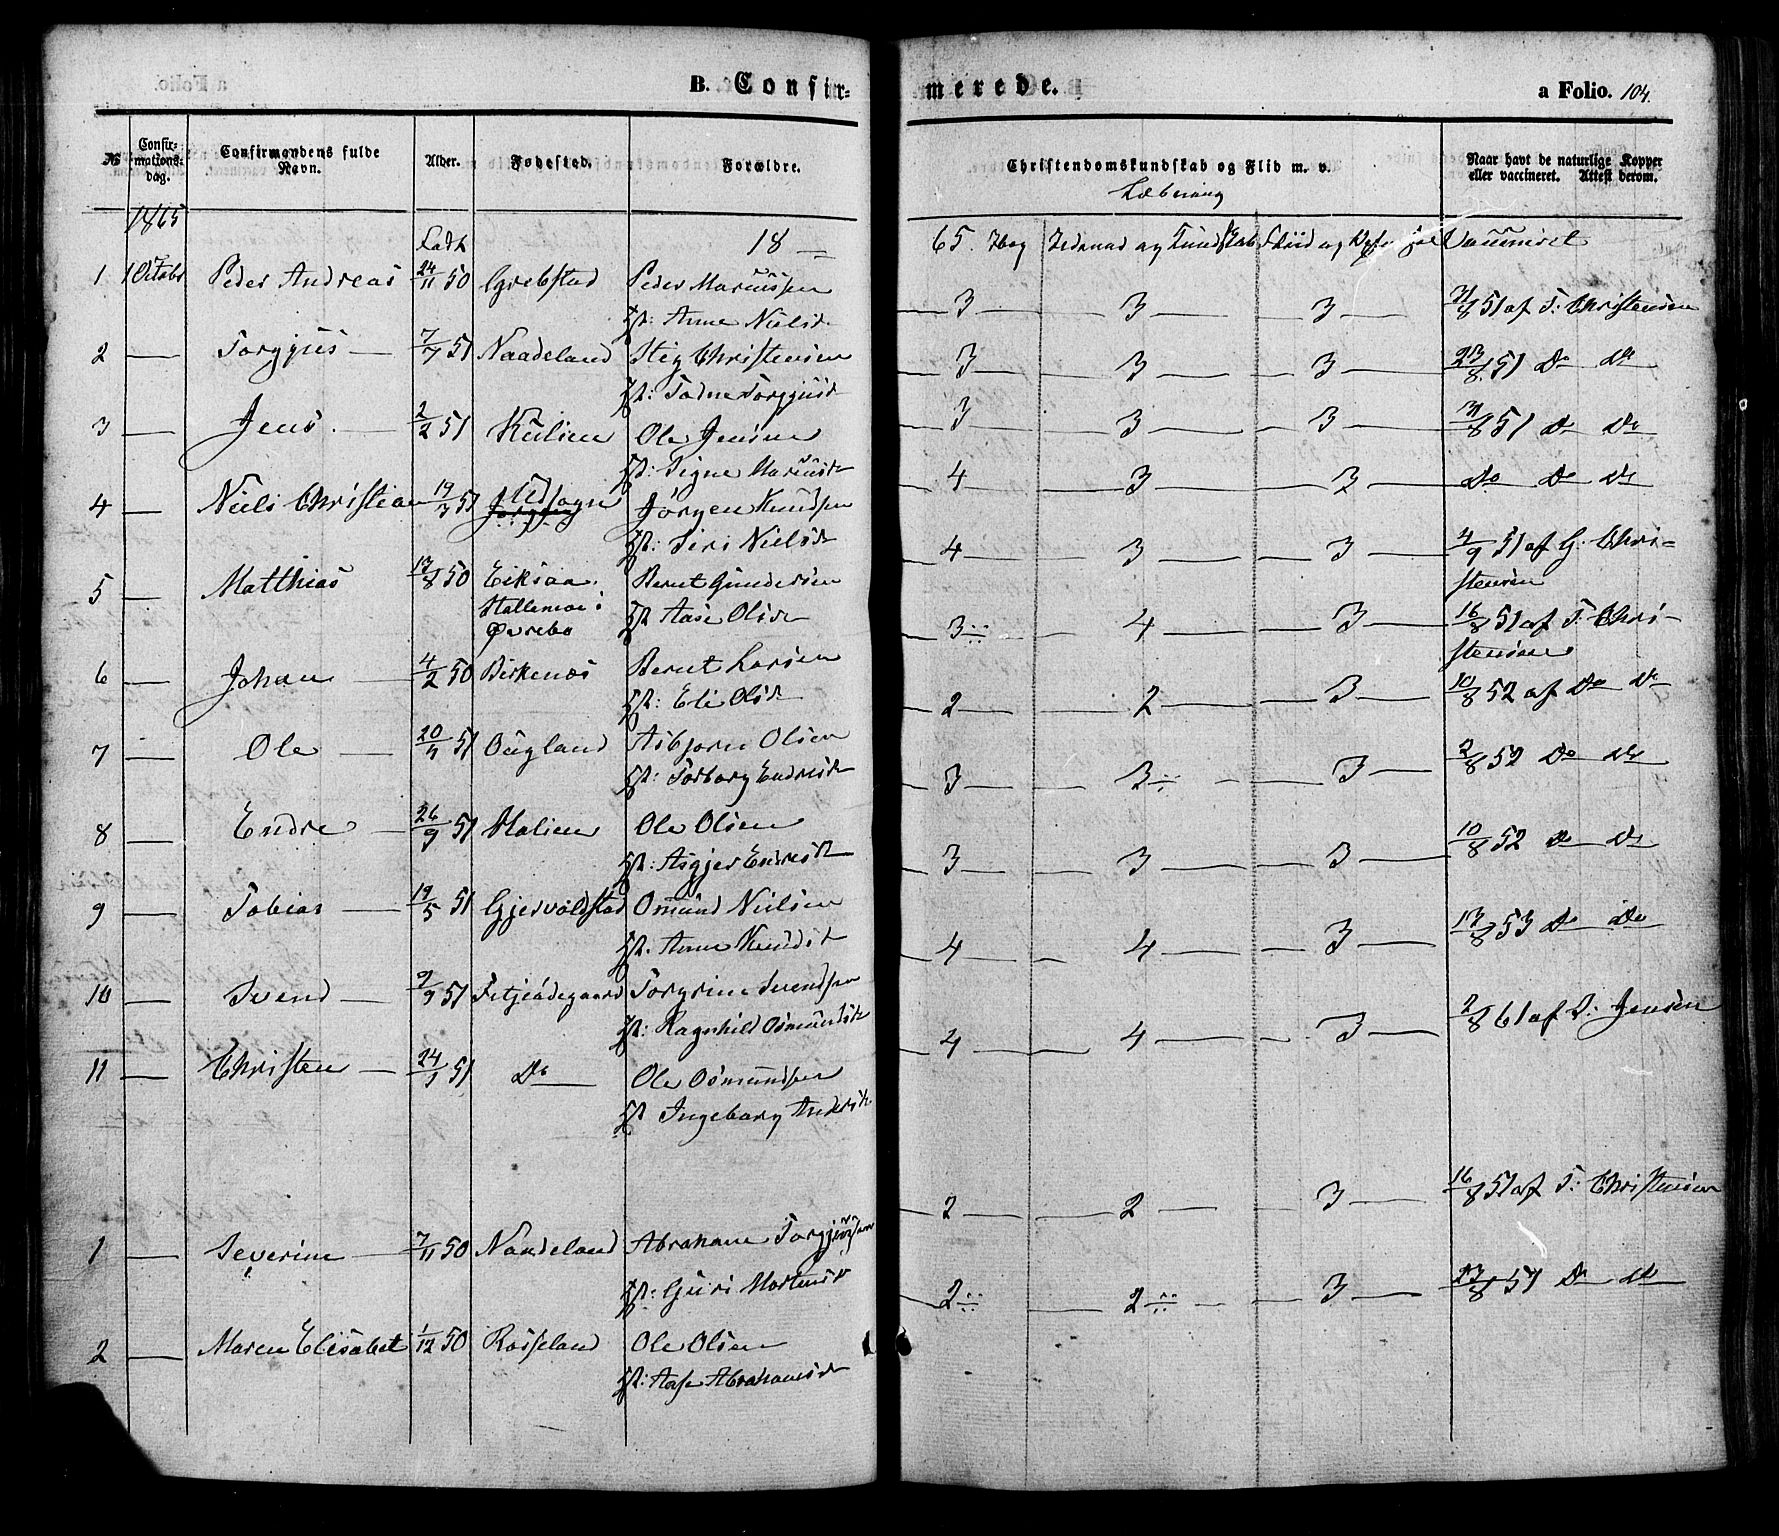 B. Confir-
merede.
a Folio. 104.
No
Confir-
mations-
dag.
Confirmandens fulde
Navn.
Alder.
Fødested.
Forældre.
Christendomskundskab og Flid m. v.
Naar havt de naturlige Kopper
eller vaccineret. Attest derom.
1865
Født
18 —
65.
Vaccineret
1 1 Octobr Peder Andreas 24/11 50 Grebstad Peder Mariussen
Anne Nielsd. 3 3 3 31/8 51 af T. Christensen
2 — Torgjus — 7/7 51 Naadeland Stig Christensen
Todne Torgjusd 3 3 3 23/8 51 Do Do
3 — Jens — 2/2 51 Kulien Ole Jensen
Signe Mariusd 3 3 3 31/8 51 Do Do
4 — Niels Christian 19/3 51 Udsogn Jörgen Knudsen
Siri Nielsd 4 3 3 Do Do Do
5 — Matthias 13/8 50 Eiksaa Bernt Gundersen 4 3 3 4/9 51 af G. Chri-
stensen
Stallemoe i
Øvrebø Aase Olsd 3 4 3 16/8 51 af T. Chri-
stensen
6 — Johan — 4/2 50 Birkenes Bernt Larsen
Eli Olsd 2 2 3 10/8 52 af Do Do
7 — Ole — 20/4 51 Øugland Asbjørn Olsen
Torborg Endresd 3 3 3 2/8 52 Do Do
8 — Endre — 26/9 51 Stalien Ole Olsen
Asgjer Endresd 3 3 3 10/8 52 Do Do
9 — Tobias — 19/5 51 Gjervoldstad Osmund Nielsen
Anne Knudsd 4 4 3 13/8 53 Do Do
10 — Svend — 9/9 51 Fitjeødegaard Torgrim Svendsen
Ragnhild Osmundsd 4 4 3 2/8 61 af D. Jensen
11 — Christen — 24/1 51 Do — Ole Osmundsen
Ingeborg Andersd
1 — Severine — 7/11 50 Naadeland Abraham Torgjussen 2 2 3 16/8 51 af T. Christensen
Guri Mortensd 2 2 3 23/8 51 Do Do
2 — Maren Elisabet 1/12 50 Rosseland Ole Olsen
Aase Abrahamsd